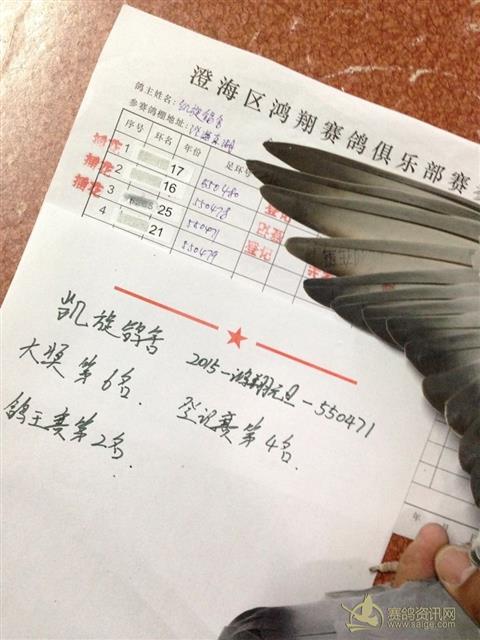 澄海区鸿翔赛鸽俱乐部赛
鸽主姓名：凯旋鸽舍
参赛鸽棚地址：
序号 环名 年份 足环号
捕花 1 17 550480 登记
捕花 2 16 550478
捕花 3 25 550471 登记
4 21 550479
凯旋鸽舍
2015-鸿翔元旦-550471
大奖第6名. 登记赛第4名.
鸽王赛第2名
年 月
赛鸽资讯网
www.saige.com